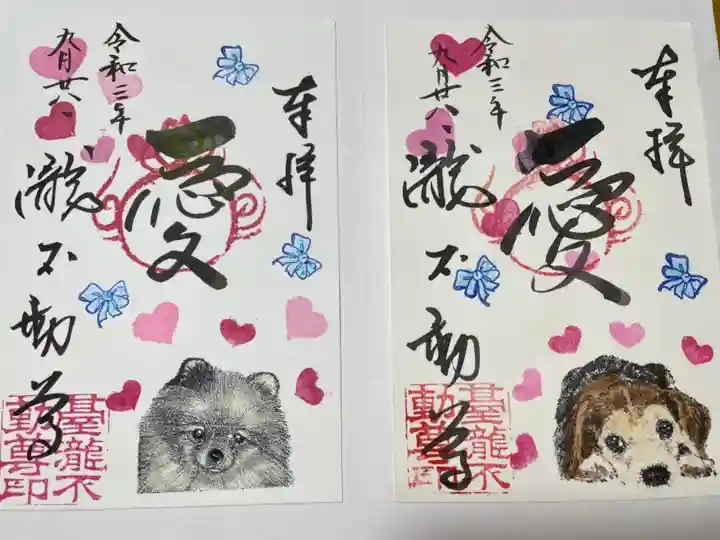 奉拝
愛
令和三年
九月廿八、
瀧不動尊
龍不
動尊印
奉拝
愛
令和三年
九月廿八、
瀧不動尊
龍不
動尊印